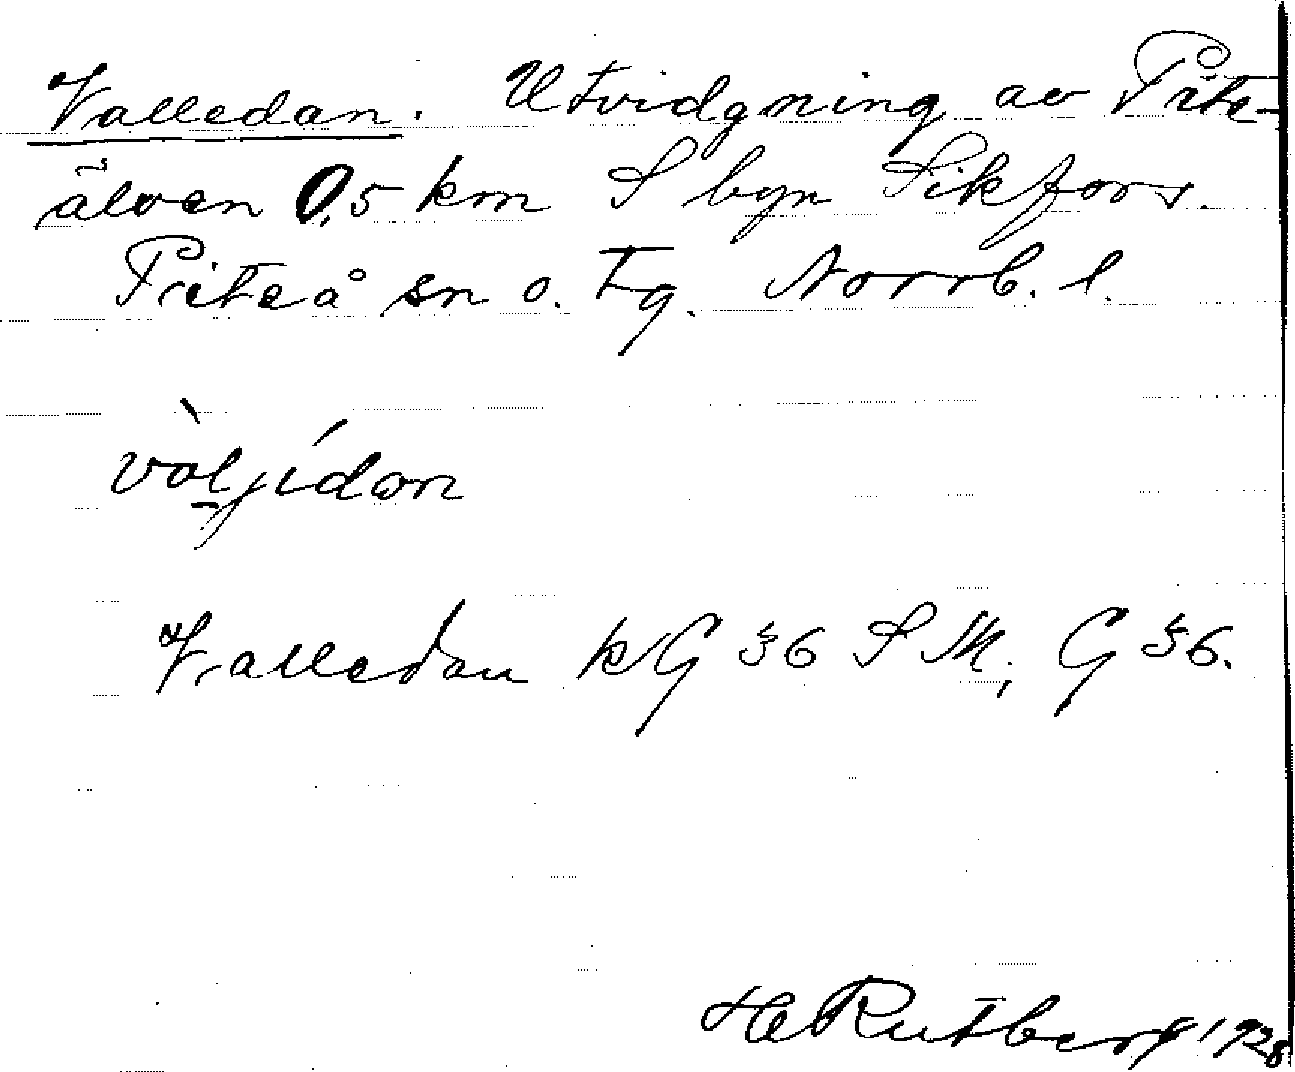 Valledan. Utvidgning av Pite-
älven 0,5 km S byn Sikfors.
Piteå sn o. tg. Norrb. l.
vàl̠jídan
Valledan kG §6 S M; G §6.
HRutberg 1928